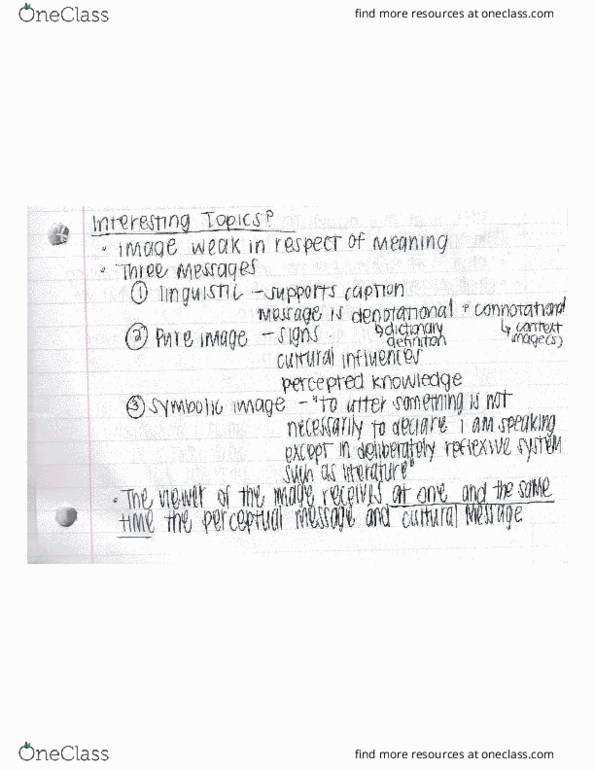 OneClass
find more resources at oneclass.com
Interesting Topics?
• image weak in respect of meaning
• Three messages
① linguistic - supports caption
message is denotational + connotational
↳ dictionary definiton
↳ context image(s)
② Pure image - signs
cultural influences
percepted knowledge
③ symbolic image - "to utter something is not
necessarily to declare I am speaking
except in deliberately reflexive system
such as literature"
• The viewer of the image receives at one and the same
time the perceptual message and cultural message
OneClass
find more resources at oneclass.com